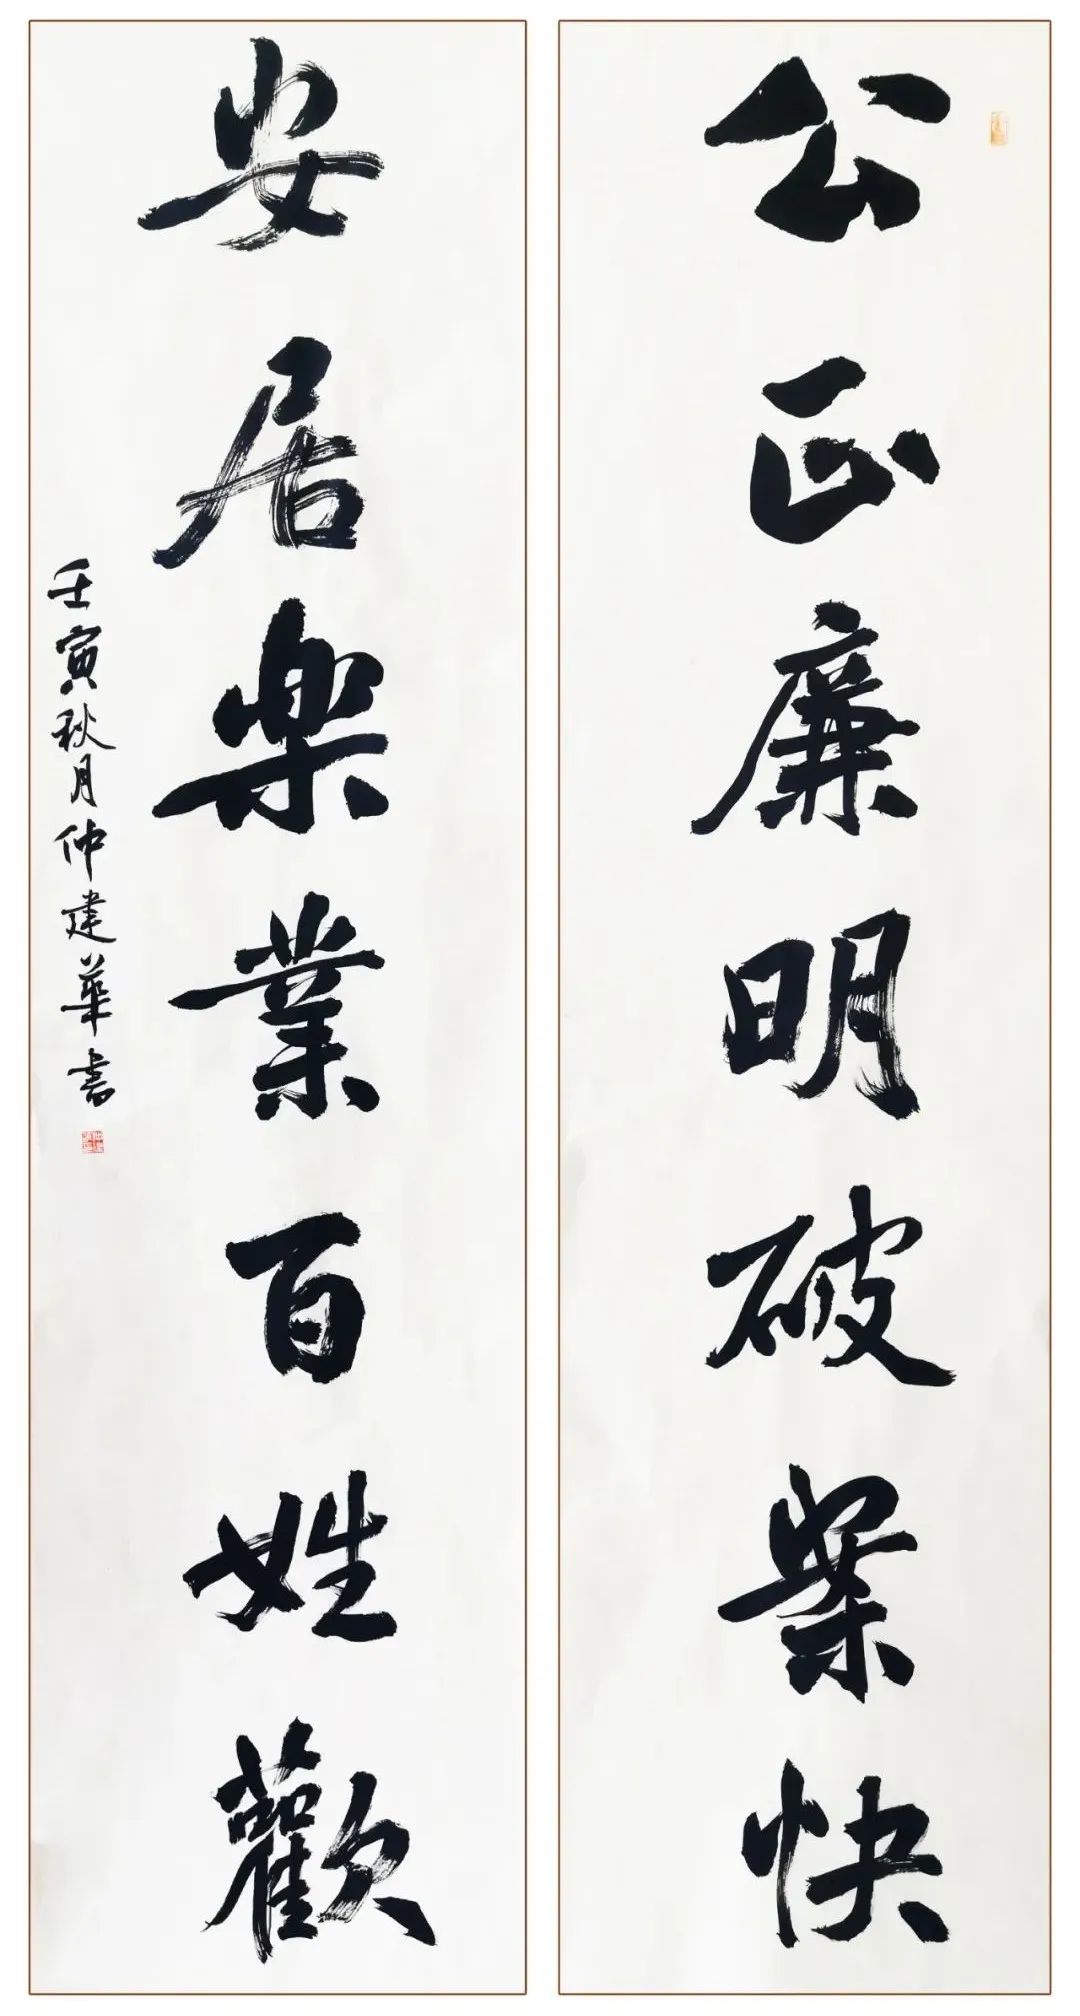 公正廉明破案快
安居楽業百姓歡
壬寅秋月仲建華书